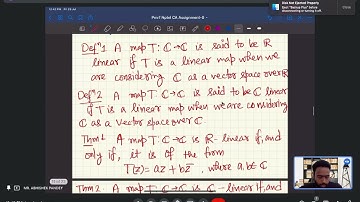 Post Nptel CA Assignment-8
Disk Not Ejected Properly
Defⁿ1 A map T: ℂ→ℂ is said to be ℝ
linear if T is a linear map when we
are considering ℂ as a vector space over ℝ
Defⁿ2 A map T: ℂ→ℂ is said to be ℂ linear
if T is a linear map when we are considering
ℂ as a vector space over ℂ.
Thm 1 A map T: ℂ→ℂ is ℝ-linear if, and
only if, it is of the form
T(z) = az + bz̄, where a, b ∈ ℂ
Thm 2. A map T: ℂ→ℂ is ℂ-linear if, and
MR. ABHISHEK PANDEY